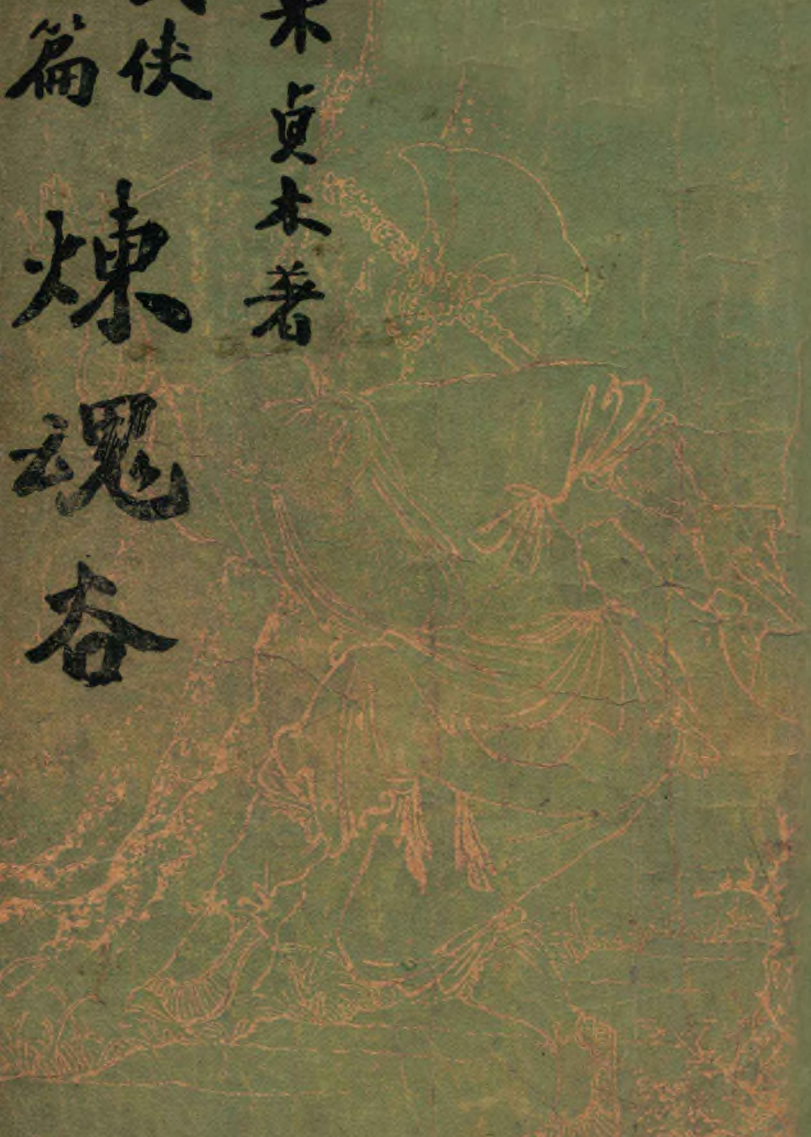 朱貞木著
俠
篇
煉魂谷